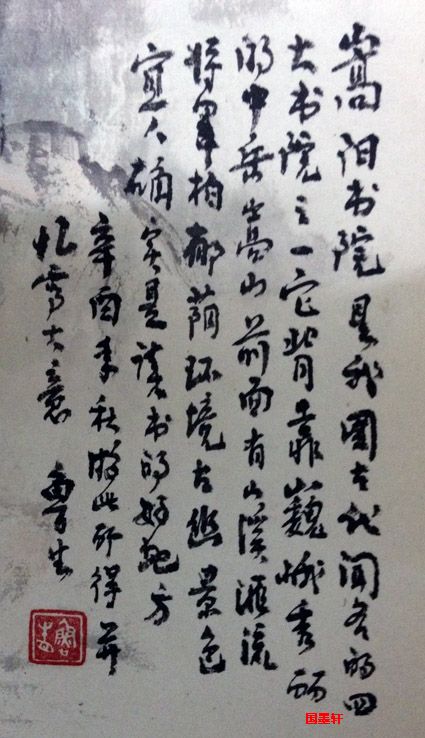 嵩阳书院是我国古代闻名的四
大书院之一它背靠山巍峨秀丽
的中岳嵩山前面有小溪汇流
将军柏郁荫环境古幽景色
宜人确实是读书的好地方
辛酉季秋游此所得并
忆写大意 鲁生
国墨轩